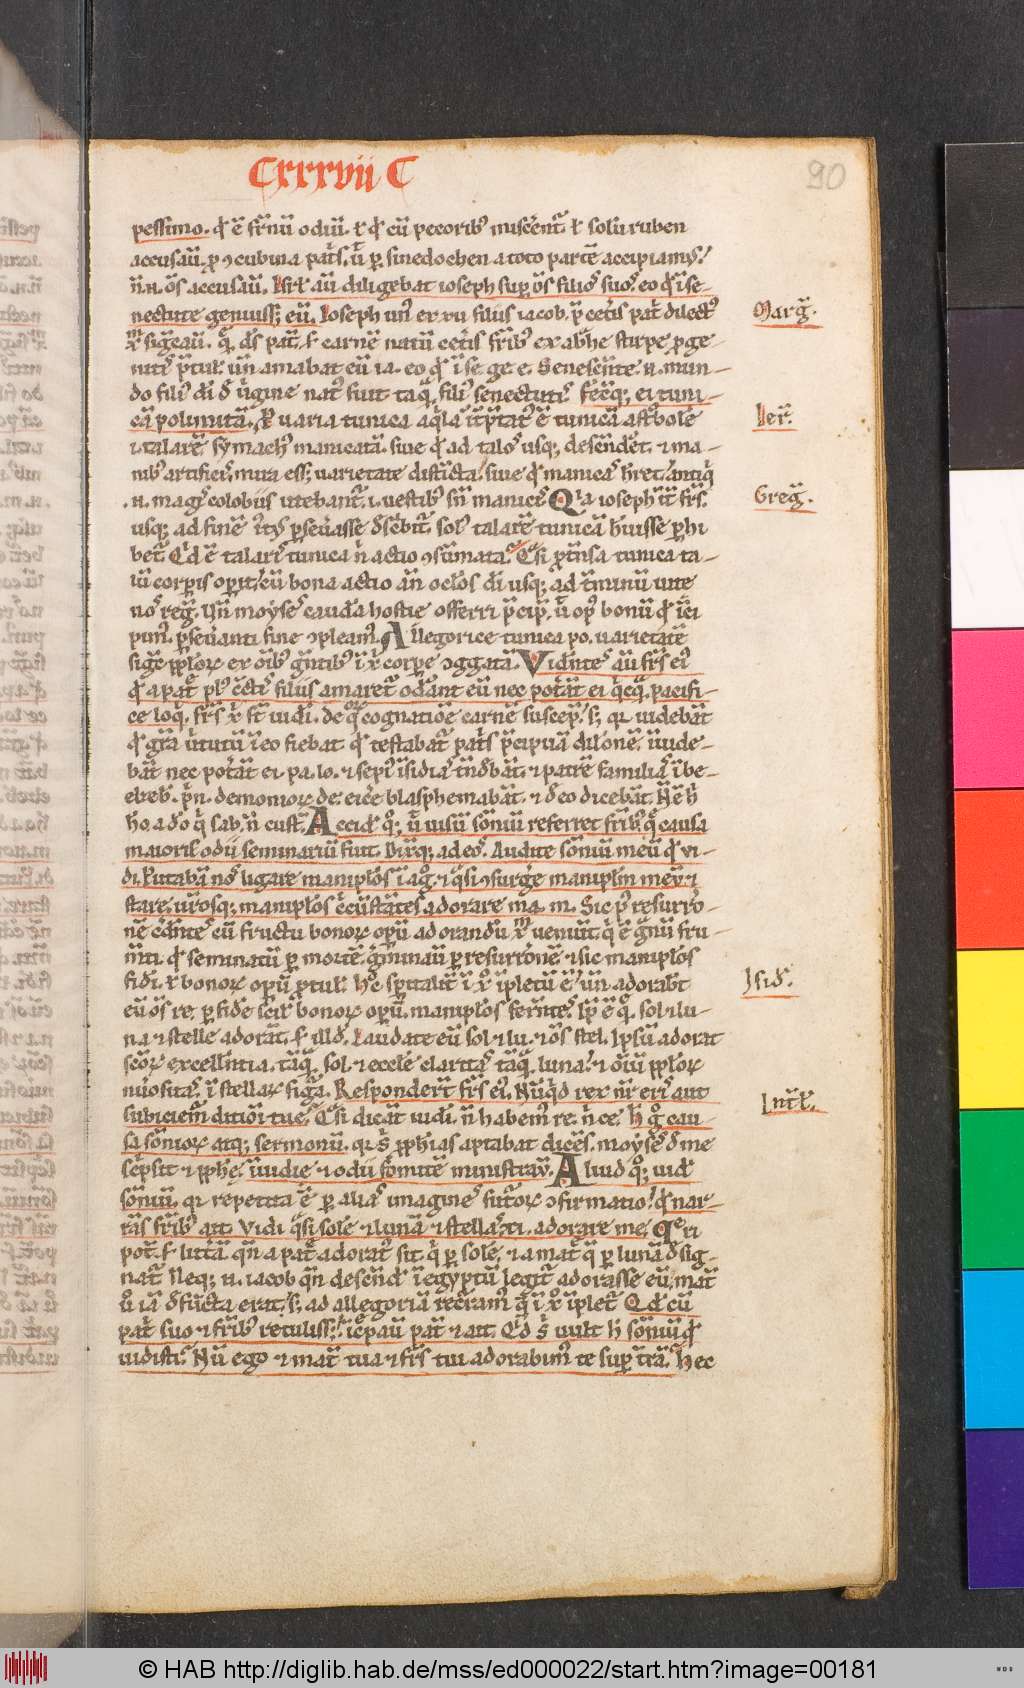 Cxxxvii C
90
pessimo. qd ē fr̄nū odiū. ł qd cū pecorib; miscēnt᷑. ł solū ruben
accusaū. ꝓ ꝯcubina pat͛s. ū ꝑ sinedochen a toto partē accipiamꝰ.
n̄. n. oēs accusaū. Isrł aū diligebat ioseph suꝑ oēs filios suos. eo qd ī se-
nectute genuiss; eū. Ioseph unꝰ ex xii filiis iacob. p̄ cet͛is pat͛ dilectꝰ
Marḡ.
xp̄m sigͨaū. q̄. ds̄ pat͛. s. carnē natū cet͛is fr̄ib; ex abr̄he stirpe ꝓge-
nitꝰ p̄tul͛. un̄ amabat eū ia. eo qd ī se. ge. e. Senescēnte. n. mun-
do filiꝰ di ð u͛gine natꝰ fuit taq̄. filiꝰ senectutis. fecitq; ei tuni-
cā polimitā. Pͬ uaria tunica aq̄la īt͛p̄tatꝰ ē tunicā astͬbolē
Ier͛.
i. talarē symachꝰ manicatā. siue qd ad talos usq; descēndēt. ł ma-
nib; artificis mira ess; uarietate distīcta. siue qd manicas hr̄et. antiq͛
. n. magꝭ colobiis utebant᷑. i. uestib; sn̄ manicis. Qͥa ioseph īt͛ fr̄s.
Greḡ.
usq; ad finē iꝰtꝰ ꝑseuasse ðsc͛bit᷑. solꝰ talarē tunicā h̄uisse ꝑhi
bet᷑. Qd ē talarꝭ tunica n̄ actio ꝯsūmata. Qͣsi ꝓtēnsa tunica ta-
lū corpis opit. cū bona actio an̄ oclos di usq; ad t͛minū uite
nos teḡ. Un̄ moyses cauda hostie offerri p̄cip͛. ū opꝰ bonū qd īci
pimꝰ. ꝑseuanti fine ꝯpleamꝰ. Allegorice tunica po. uarietatē
siḡͨ pp̄lorꝝ ex oīb; gn̄tib; ī xp̄i corpe ꝯgͬgata. Vidēntes aū fr̄s eiꝰ
qd a pat͛ plꝰ cēct͛is filiis amaret᷑ od͛ant eū nec pot͛ant ei q͛cq̄. pacifi-
ce loq͛. fr̄s xp̄i st̄ iudi. de qͦꝝ cognatiōe carnē suscep͛. s; qr uidebāt
qd gr̄a u͛tutū ī eo fiebat. qd testabat᷑ pat͛s p̄cipuā dil͛onē. īuide-
bāt nec pot͛ant ei pa. lo. ⁊ sepꝰ īsidias tn̄ðbāt. ⁊ patrē familias ī be-
elzeb̄. p̄n. demoniorꝝ de. eic͛e blasphemabāt. ⁊ ð eo dicebāt. N̄ ē h
ho. a do q͛ sab̄. n̄ cust. Accid͛ qͦ; ū uisū sōniū referret fr̄ib; q̄ causa
maioris odii seminariū fuit. Dixq; ad eos. Audite sōniū meū qd vi-
di. Putabā nos ligare manipłos ī agͦ. ⁊ qͣsi ꝯsurḡe manipłm meū ⁊
stare. ur̄osq; manipłos c͛cūstantes adorare ma. m. Sic pꝰ resurrō-
nē c͛dēntes cū fructu bonorꝝ opū ad orandū xp̄m uen͛int. q̄ ē gn̄ū fru-
mti. qd seminatū ꝑ mortē. ḡminaū ꝑ resurr͛onē. ⁊ sic manipłos
fidi. ⁊ bonorꝝ opū p̄tul͛. hͦc spūalit͛ ī xp̄o īpletū ē. un̄ adorab̄t
Isid͛.
eū oēs re. ꝑ fidē scīꝰ bonorꝝ opū. manipłos fer̄ntes. Ip̄e ē qͦ. sol ⁊ lu-
na ⁊ stelle adorāt. s. illd. Laudate eū sol ⁊ lu. ⁊ oēs stel. Ipsū adorat
sc̄orꝝ excellntia. taq̄. sol. ⁊ ecclē claritas taq̄. luna. ⁊ oīū pp̄lorꝝ
nūositas. ī stellarꝝ figͣ. Responder̄t fr̄s eiꝰ. Nūqͥd rex nr̄ eris aut
Int͛ł.
subiciem͛ ditioni tue. Qͣsi dicāt iudi. n̄ habemꝰ re. n͛ ce. h̄ gͦ cau-
sa sōniorꝝ atq; sermonū. qr s͛ pp̄hias aptabat dicēs. moyses ð me
sc͛psit ⁊ pp̄he. īuidie ⁊ odii fomitē ministrav̄. Aliud qͦ; uid͛
sōniū. qr repetita ē ꝑ alias imagines futorꝝ ꝯfirmatio. qd nar-
rās fr̄ib; ait. Vidi qͣsi solē ⁊ lunā ⁊ stellas xi. adorare me. Qͤri
pot͛. s. litt͛ā. qn̄ a pat͛ adoratꝰ sit. q͛ ꝑ solē. ⁊ a mat͛ q̄ ꝑ lunā ðsig-
nat᷑. Neq; n. iacob qn̄ descēnd͛ ī egyptū legit᷑ adorasse eū. mat͛
ū iā ðfūcta erat. s; ad allegoriā recr͛amꝰ. q̄ ī xp̄o īplet᷑. Qd cū
pat͛ suo ⁊ fr̄ib; retuliss;. īc͛paū pat͛ ⁊ ait. Qd s͛ uult h̄ sōniū qd
uidisti. Nū ego ⁊ mat͛ tua ⁊ fr̄s tui adorabimꝰ te suꝑ tr̄ā. Hec
© HAB http://diglib.hab.de/mss/ed000022/start.htm?image=00181